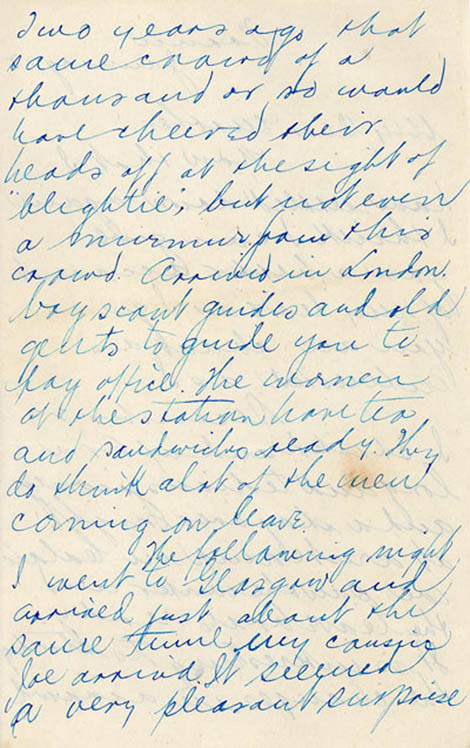 Two years ago that
same crowd of a
thousand or so would
have cheered their
heads off at the sight of
"blightie", but not even
a murmur from this
crowd. Arrived in London.
boy scout guides and old
gents to guide you to
pay office. The women
at the station have tea
and sandwiches ready. They
do think a lot of the men
coming on leave.
The following night
I went to Glasgow and
arrived just about the
same time my cousin
Joe arrived. It seemed
a very pleasant surprise